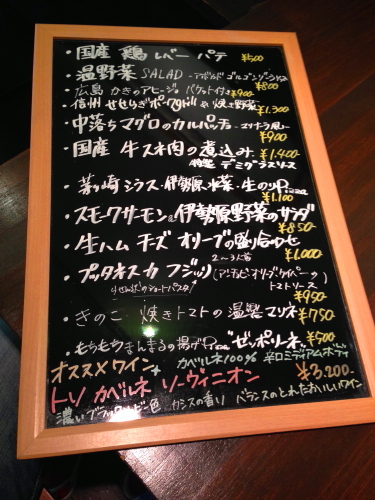 ・国産 鶏レバーパテ ¥500
・温野菜 SALAD -アボカド ゴルゴンゾーラソース ¥800
・広島 かきのアヒージョ バケット付き ¥900
・信州 せせらぎポーク や 焼き野菜 ¥1.300
・中落ちマグロのカルパッチョ -マリナーラ風- ¥900
・国産 牛スネ肉の煮込み ¥1.400-
特製 デミグラスソース
・茅ヶ崎シラス・伊勢原水菜・生のりPizza ¥1.100
・スモークサーモン&伊勢原野菜のサラダ ¥850
・生ハム チーズ オリーブの盛り合わせ ¥1.000
2~3人前
・プッタネスカ フジッリ (アンチョビ・オリーブ・ケイパーの
(らせん状のショートパスタ) トマトソース ¥950
・きのこ 焼きトマトの温製マリネ ¥750
・もちもちまんまるの揚げPizza "ゼッポリーネ" ¥500
オススメワイン カベルネ100% 辛口ミディアムボディ
トソ カベルネ ソーヴィニオン ¥3.200-
濃いブラックルビー色 カシスの香り バランスのとれたおいしいワイン